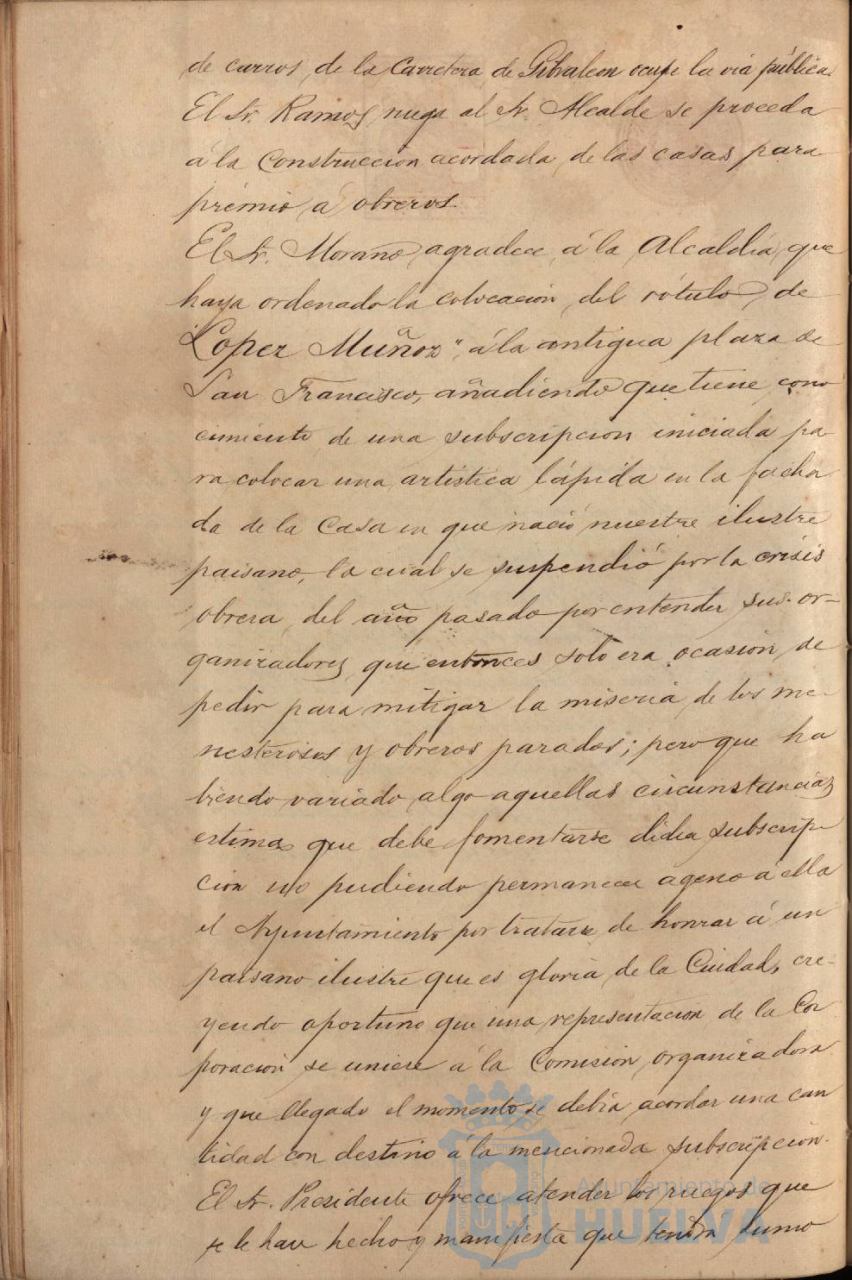 de carros de la Carretera de Gibraleon ocupe la via pública.
El Sr. Ramos ruega al Sr. Alcalde se proceda
á la Construccion acordada de las casas para
prémio á obreros.
El Sr. Moraño agradece á la Alcaldía que
haya ordenado la colocación del rótulo de
"Lopez Muñoz" á la antigua plaza de
San Francisco, añadiendo que tiene cono
cimiento de una subscripcion iniciada pa-
ra colocar una artistica lápida en la facha
da de la Casa en que nació nuestre ilustre
paisano, la cual se suspendió por la crísis
obrera del año pasado por entender sus or-
ganizadores que entonces solo era ocasión de
pedir para mitigar la miseria de los me-
nesterosos y obreros parados; pero que ha
biendo variado algo aquellas circunstancias
estima que debe fomentarse dicha subscrip-
cion no pudiendo permanecer ageno á ella
el Ayuntamiento por tratarse de honrar á un
paisano ilustre que es gloria de la Ciudad, cre-
yendo oportuno que una representacion de la Cor
poración se uniese á la Comisión organizadora
y que llegado el momento se debía acordar una can
tidad con destino á la mencionada subscripción.
El Sr. Presidente ofrece atender los ruegos que
se le han hecho y manifiesta que tendrá sumo
Ayuntamiento de
HUELVA